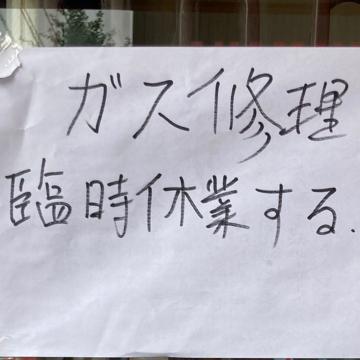 ガス修理
臨時休業する.